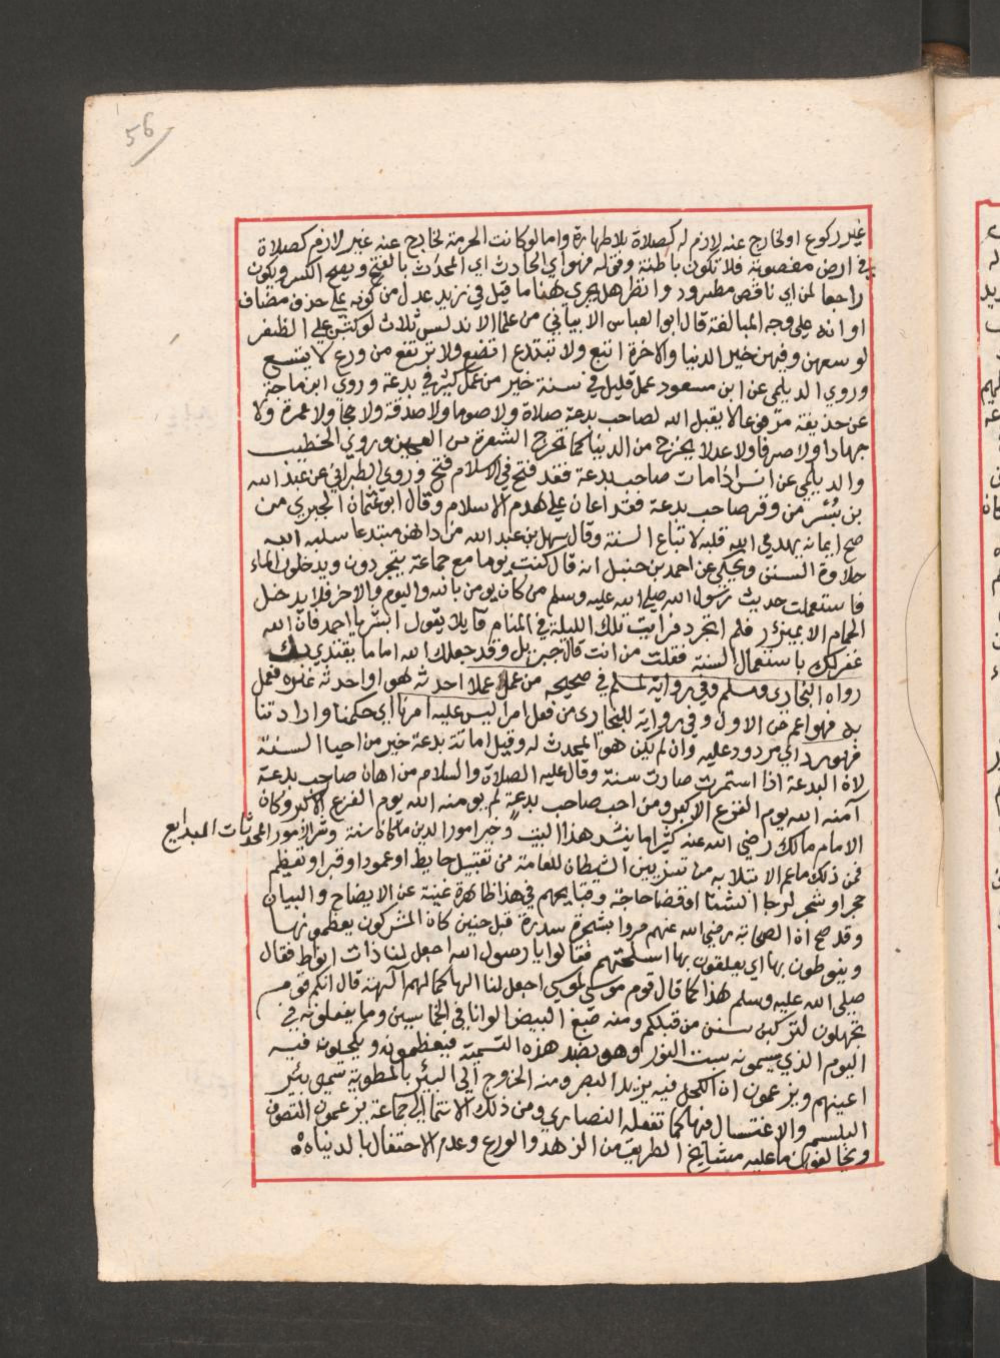 56
غير ركوع او لخارج عنه لازم له كصلاة بلا طهارة واما لو كانت الحرمة لخارج عنه غير لازم كصلاة
في ارض مغصوبة فلا تكون باطلة وقوله فهو اي الحادث اي المحدث بالفتح ويصح الكسر ويكون
راجعا لمن اي ناقص مطرود وانظر هل يجري هنا ما قيل في زيد عدل من كونه على حذف مضاف
او انه على وجه المبالغة قال ابو العباس الابياني من علما الاندلس ثلاث لو كتبن على الظفر
لوسعهن وفيهن خير الدنيا والاخرة اتبع ولا تبتدع اتضع ولا ترتفع من ورع لا يتسع
وروي الديلمي عن ابن مسعود عمل قليل في سنة خير من عمل كثير في بدعة وروي ابن ماجة
عن حذيفة مرفوعا لا يقبل الله لصاحب بدعة صلاة ولا صوما ولا صدقة ولا حجا ولا عمرة ولا
جهادا ولا صرفا ولا عدلا يخرج من الدنيا كما تخرج الشعرة من العجين وروي الخطيب
والديلمي عن انس اذا مات صاحب بدعة فقد فتح في الاسلام فتح وروي الطبراني عن عبد الله
بن بُسْر من وقر صاحب بدعة فقد اعان على هدم الاسلام وقال ابو عثمان الجبري من
صح ايمانه يهدي الله قلبه لاتباع السنة وقال سهل بن عبد الله من داهن مبتدعا سلبه الله
حلاوة السنن ويحكى عن احمد بن حنبل انه قال كنت يوما مع جماعة يتجردون ويدخلون الماء
فاستعملت حديث رسول الله صلى الله عليه وسلم من كان يومن بالله واليوم والاخر فلا يدخل
الحمام الا بميزر فلم اتجرد فرايت تلك الليلة في المنام قايلا يقول ابشر يا احمد فان الله
غفر لك باستعمال السنة فقلت من انت قال جبريل وقد جعلك الله اماما يقتدي بك
رواه البخاري ومسلم وفي رواية لمسلم في صحيحه من عمل عملا احدثه هو او احدثه غيره فعمل
به فهو اعم من الاول وفي رواية للبخاري من فعل امرا ليس عليه امرنا اي حكمنا وارادتنا
فهو رد اي مردود عليه وان لم يكن هو المحدث له وقيل اماتة بدعة خير من احيا السنة
لان البدعة اذا استمرت صارت سنة وقال عليه الصلاة والسلام من اهان صاحب بدعة
آمنه الله يوم الفزع الاكبر ومن احب صاحب بدعة لم يومنه الله يوم الفزع الاكبر وكان
الامام مالك رضي الله عنه كثيرا ما ينشد هذا البيت وخير امور الدين ما كان سنة وشر الامور المحدثات البدايع
فمن ذلك ما عم الابتلا به من تزيين الشيطان للعامة من تقبيل حايط او عمود او قبر او تعظيم
حجر او شجر لرجا الشفا او قضا حاجة وقبايحهم في هذا ظاهرة غنية عن الايضاح والبيان
وقد صح ان الصحابة رضي الله عنهم مروا بشجرة سدرة قبل حنين كان المشركون يعظمونها
وينوطون بها اي يعلقون بها اسلحتهم فقالوا يا رسول الله اجعل لنا ذات انواط فقال
صلى الله عليه وسلم هذا كما قال قوم موسى لموسى اجعل لنا الها كما لهم آلهة قال انكم قوم
تجهلون لتركبن سنن من قبلكم ومنه صبغ البيض الوانا في الخماسين وما يفعلونه في
اليوم الذي يسمونه سبت النور وهو بضد هذه التسمية فيعظمونه ويكحلون فيه
اعينهم ويزعمون ان الكحل فيه يزيد البصر ومنه الخروج الى البير بالمطوية تسمى بير
البلسم والاغتسال فيها كما تفعله النصاري ومن ذلك الانتما الى جماعة يزعمون التصوف
ويخالفون ما عليه مشايخ الطريق من الزهد والورع وعدم الاحتفال بالدنيا